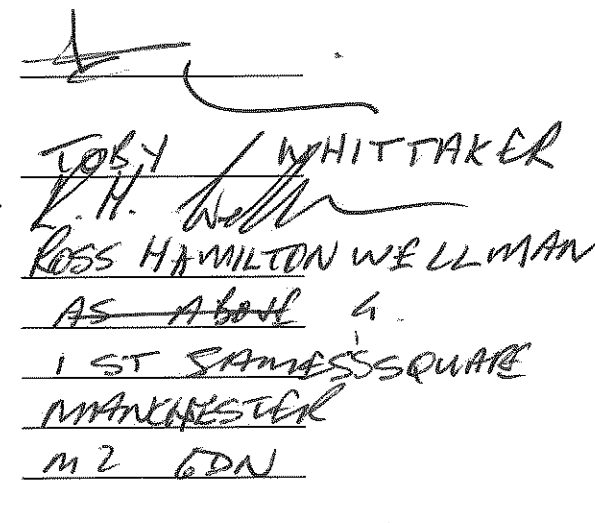 TOBY WHITTAKER
R.H. Wellman
ROSS HAMILTON WELLMAN
AS ABOVE
1 ST JAMES'S SQUARE
MANCHESTER
M2 6DN